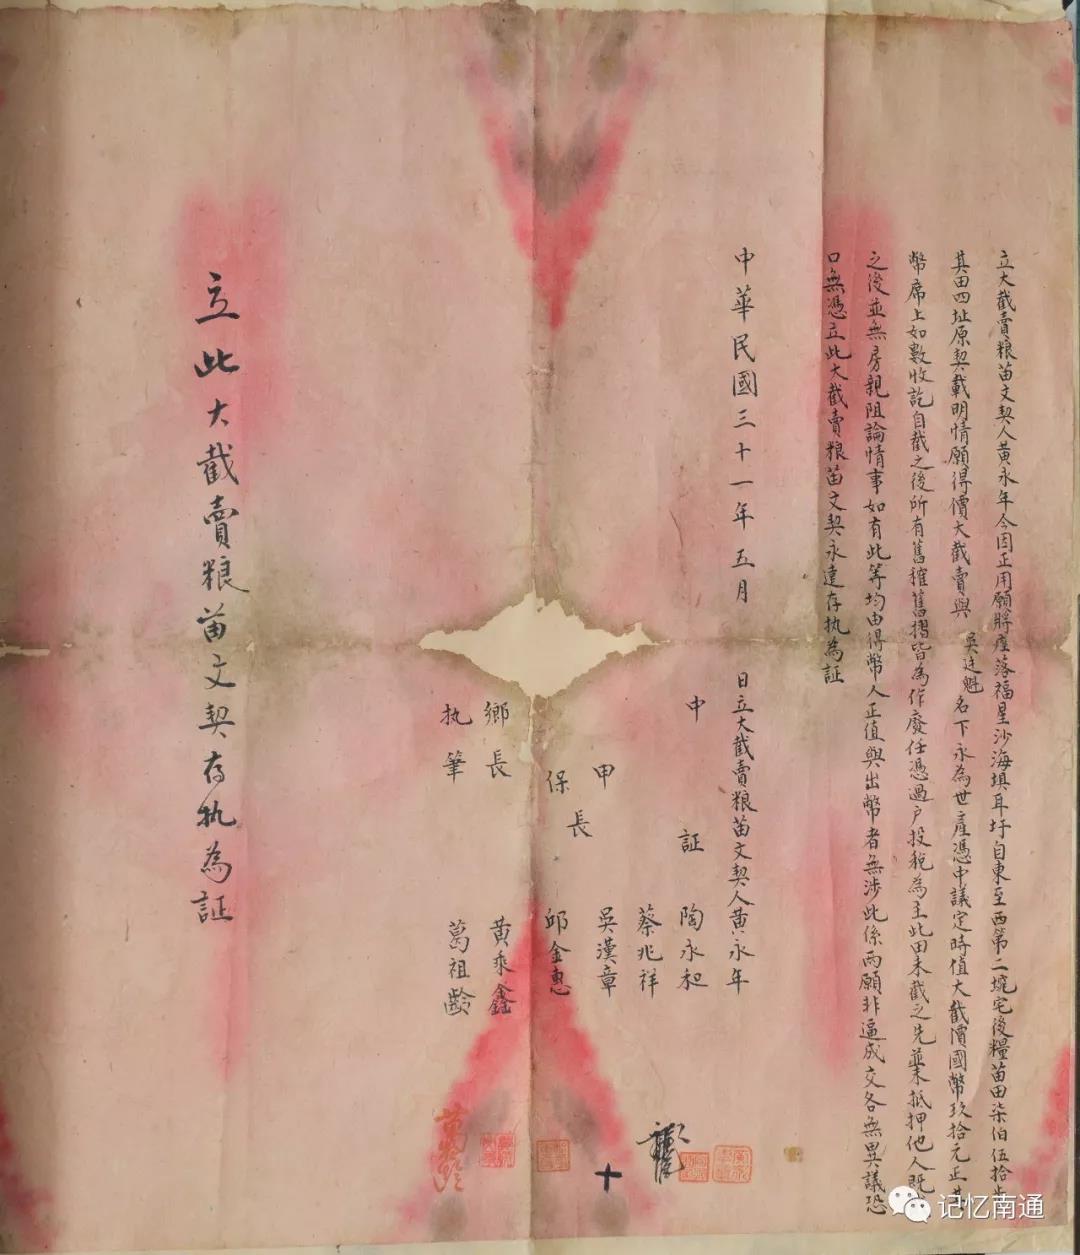 立大截賣粮苗文契人黄永年今因正用願將座落福星沙海填耳圩自東至西第二埦宅後糧苗田柒伯伍拾步
其田四址原契載明情願得價大截賣與 吳廷魁 名下永為世產憑中議定時值大截價國幣玖拾元正其
幣席上如數收訖自截之後所有舊
舊摺皆為作廢任憑過户投稅為主此田未截之先並未抵押他人既
之後並無房親阻論情事如有此等均由得幣人正值與出幣者無涉此係兩願非逼成交各無異議恐
口無憑立此大截賣粮苗文契永遠存执為証
中華民國三十一年五月 日立大截賣粮苗文契人黄永年
中 証 陶永和
蔡兆祥
甲 長 吳漢章
保 長 邱金惠
鄉長 黄乘鑫
执筆 葛祖齡
立此大截賣粮苗文契存执為証
记忆南通